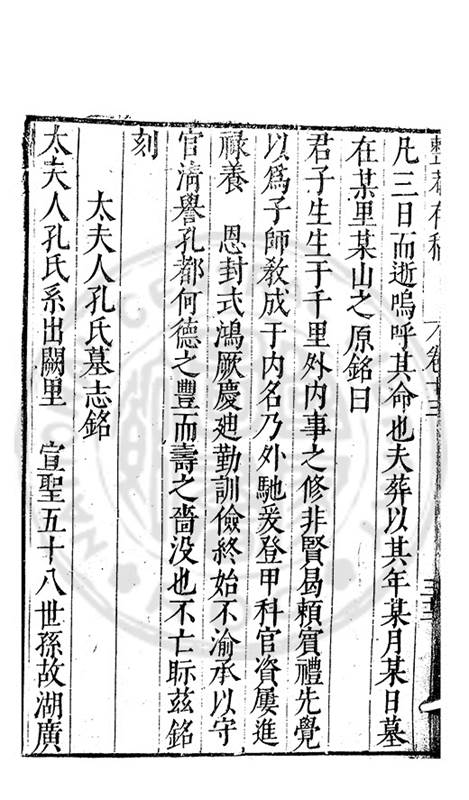 整菴存稿 卷十三
凡三日而逝嗚呼其命也夫葬以其年某月某日墓
在某里某山之原銘曰
君子生生于千里外内事之修非賢曷頼賓禮先覺
以為子師教成于内名乃外馳爰登甲科官資屢進
祿養 恩封式鴻厥慶廸勤訓儉終始不渝承以守
官淸譽孔都何德之豐而壽之嗇没也不亡眎兹銘
刻
太夫人孔氏墓志銘
太夫人孔氏系出闕里 宣聖五十八世孫故湖廣